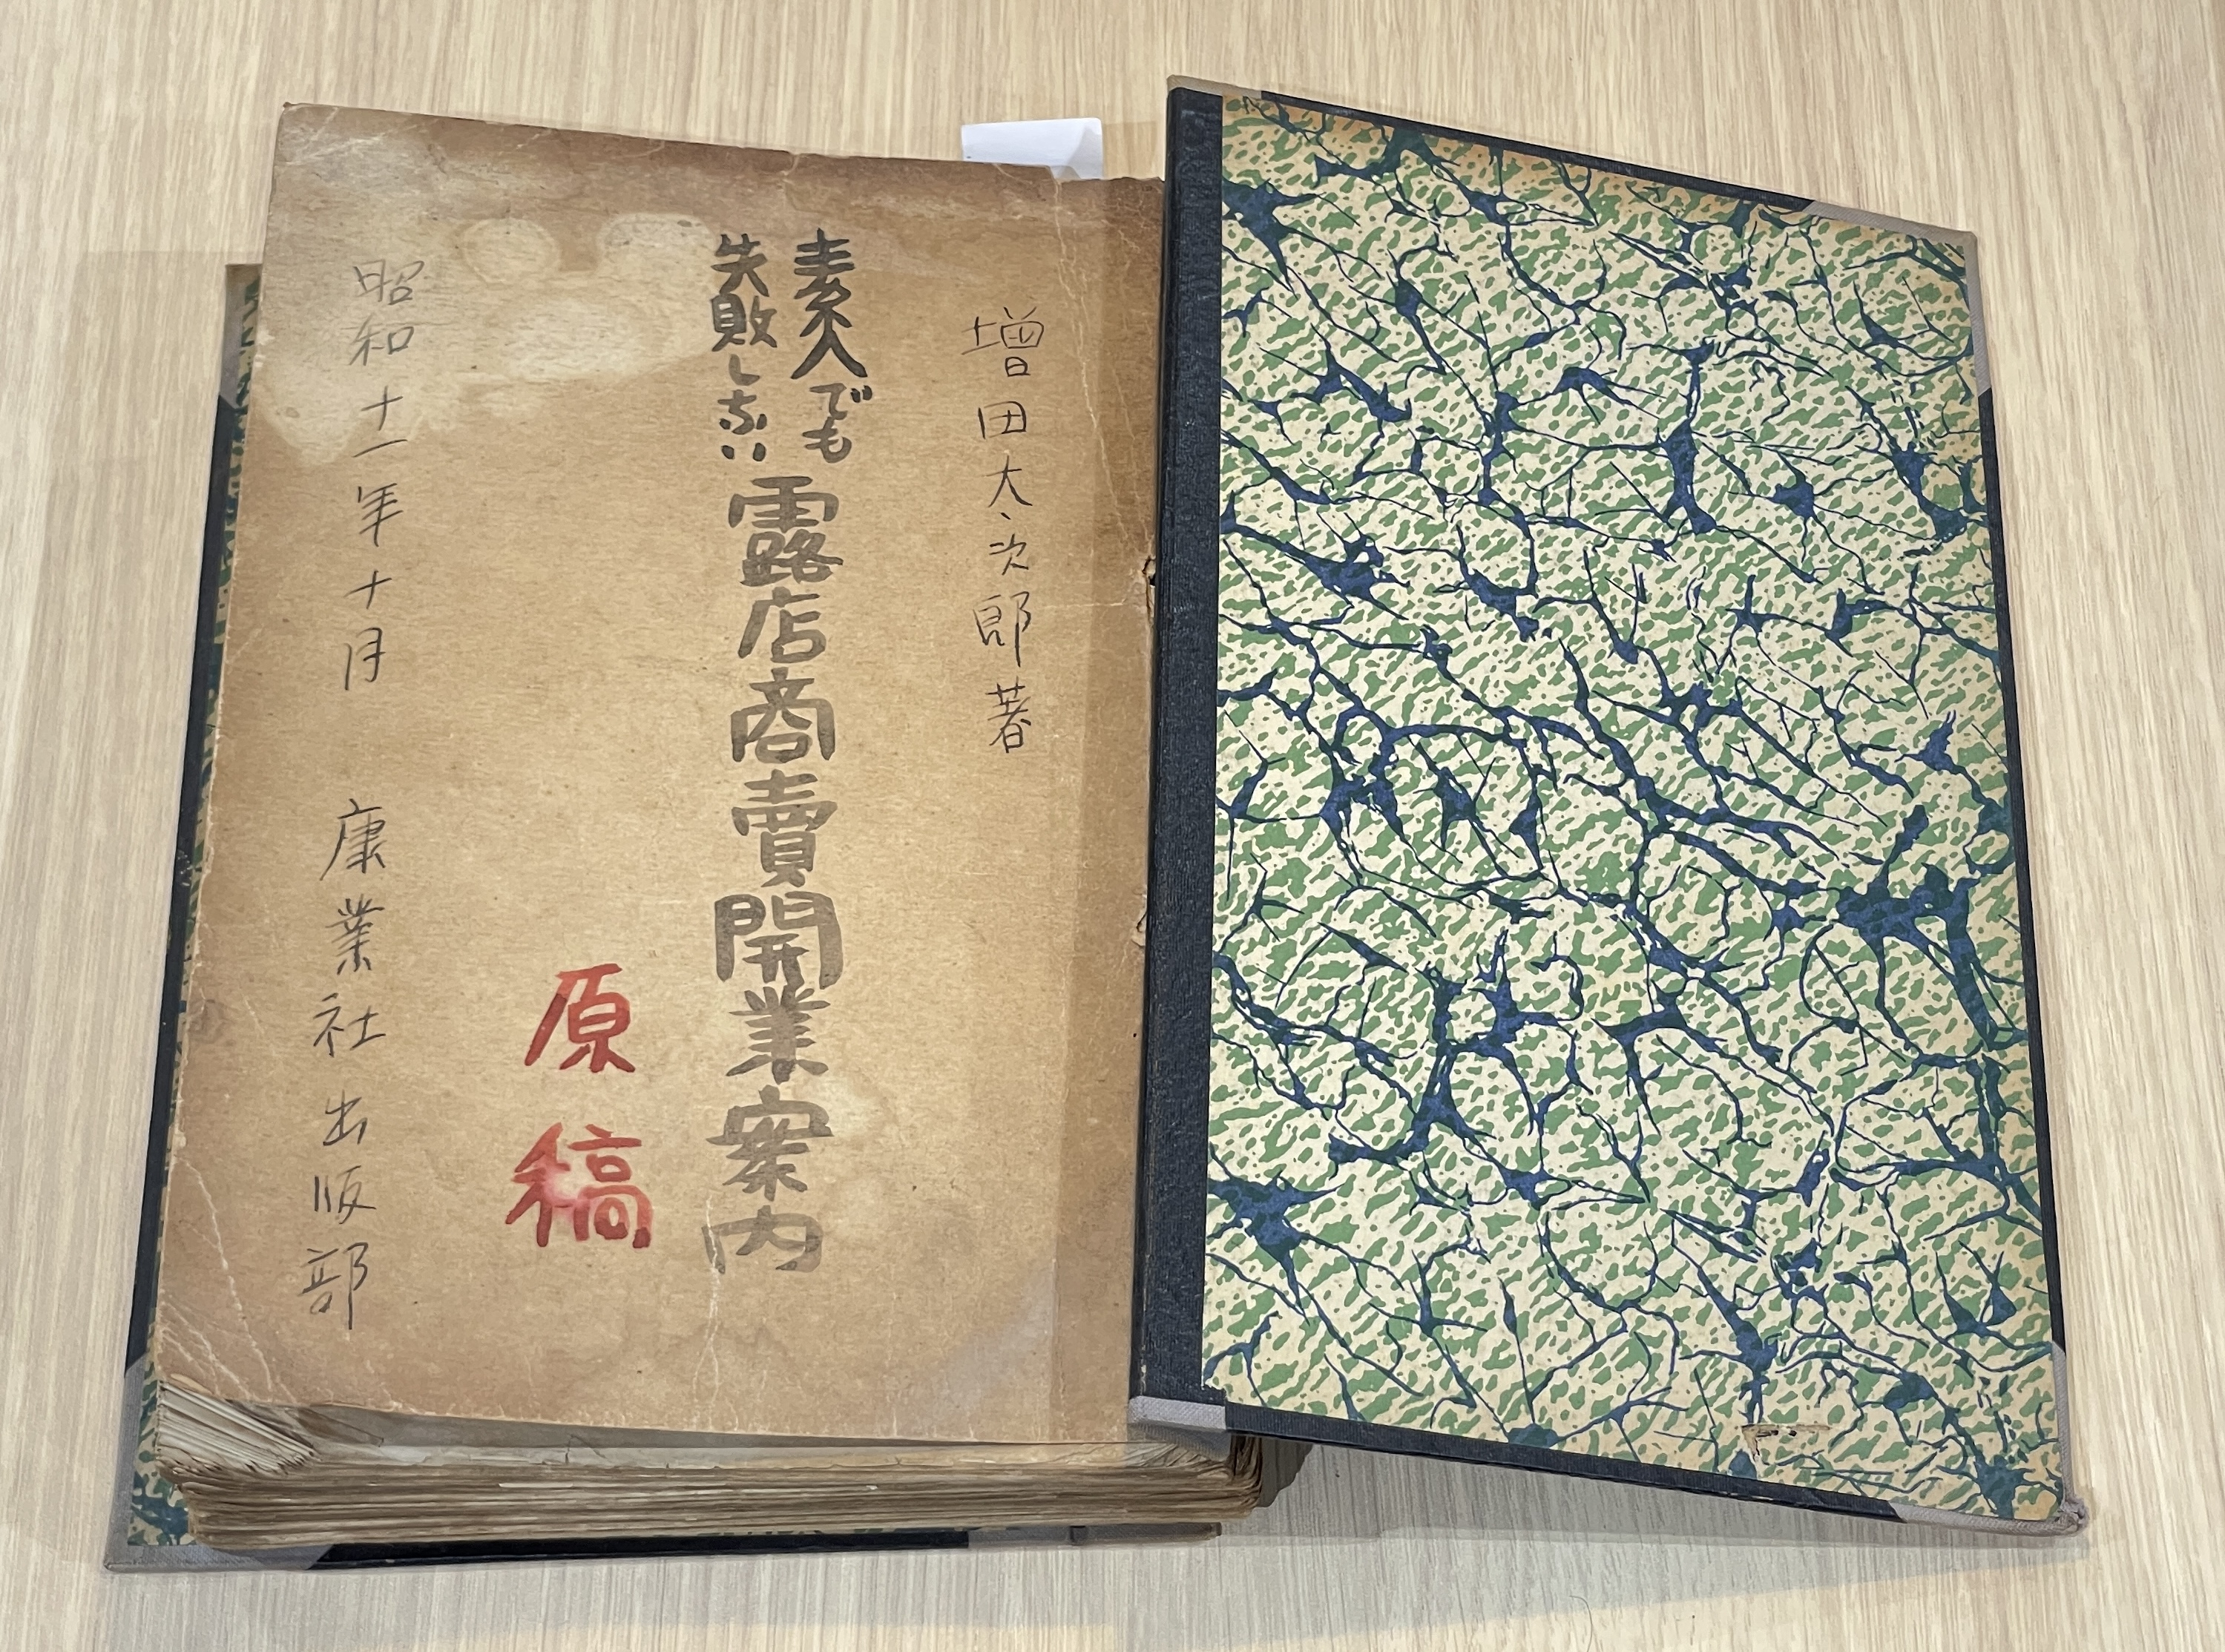 増田太次郎著
素人でも
失敗しない
露店商賣開業案内
原稿
昭和十一年十月 康業社出版部